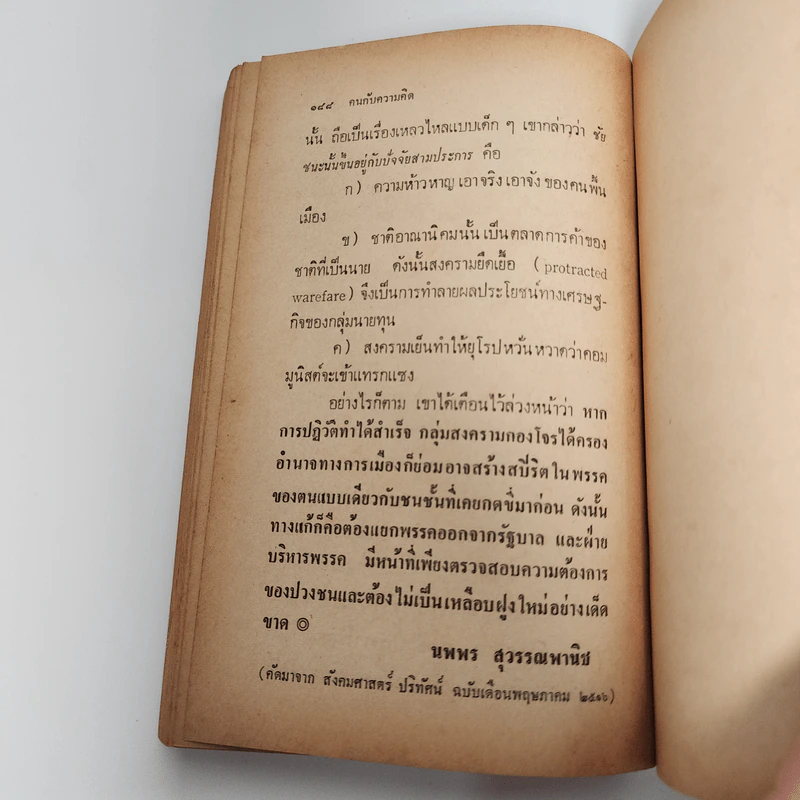 ๑๔๘ คนกับความคิด
นั้น ถือเป็นเรื่องเหลวไหลแบบเด็ก ๆ เขากล่าวว่า ชัย
ชนะนั้นขึ้นอยู่กับปัจจัยสามประการ คือ
ก) ความห้าวหาญ เอาจริง เอาจัง ของคนพื้น
เมือง
ข) ชาติอาณานิคมนั้น เป็นตลาดการค้าของ
ชาติที่เป็นนาย ดังนั้นสงครามยืดเยื้อ (protracted
warefare) จึงเป็นการทำลายผลประโยชน์ทางเศรษฐ-
กิจของกลุ่มนายทุน
ค) สงครามเย็นทำให้ยุโรปหวั่นหวาดว่าคอม
มูนิสต์จะเข้าแทรกแซง
อย่างไรก็ตาม เขาได้เตือนไว้ล่วงหน้าว่า หาก
การปฏิวัติทำได้สำเร็จ กลุ่มสงครามกองโจรได้ครอง
อำนาจทางการเมืองก็ย่อมอาจสร้างสปิริตในพรรค
ของตนแบบเดียวกับชนชั้นที่เคยกดขี่มาก่อน ดังนั้น
ทางแก้ก็คือต้องแยกพรรคออกจากรัฐบาล และฝ่าย
บริหารพรรค มีหน้าที่เพียงตรวจสอบความต้องการ
ของปวงชนและต้องไม่เป็นเหลือบฝูงใหม่อย่างเด็ด
ขาด ◎
นพพร สุวรรณพานิช
(คัดมาจาก สังคมศาสตร์ ปริทัศน์ ฉบับเดือนพฤษภาคม ๒๕๑๖)